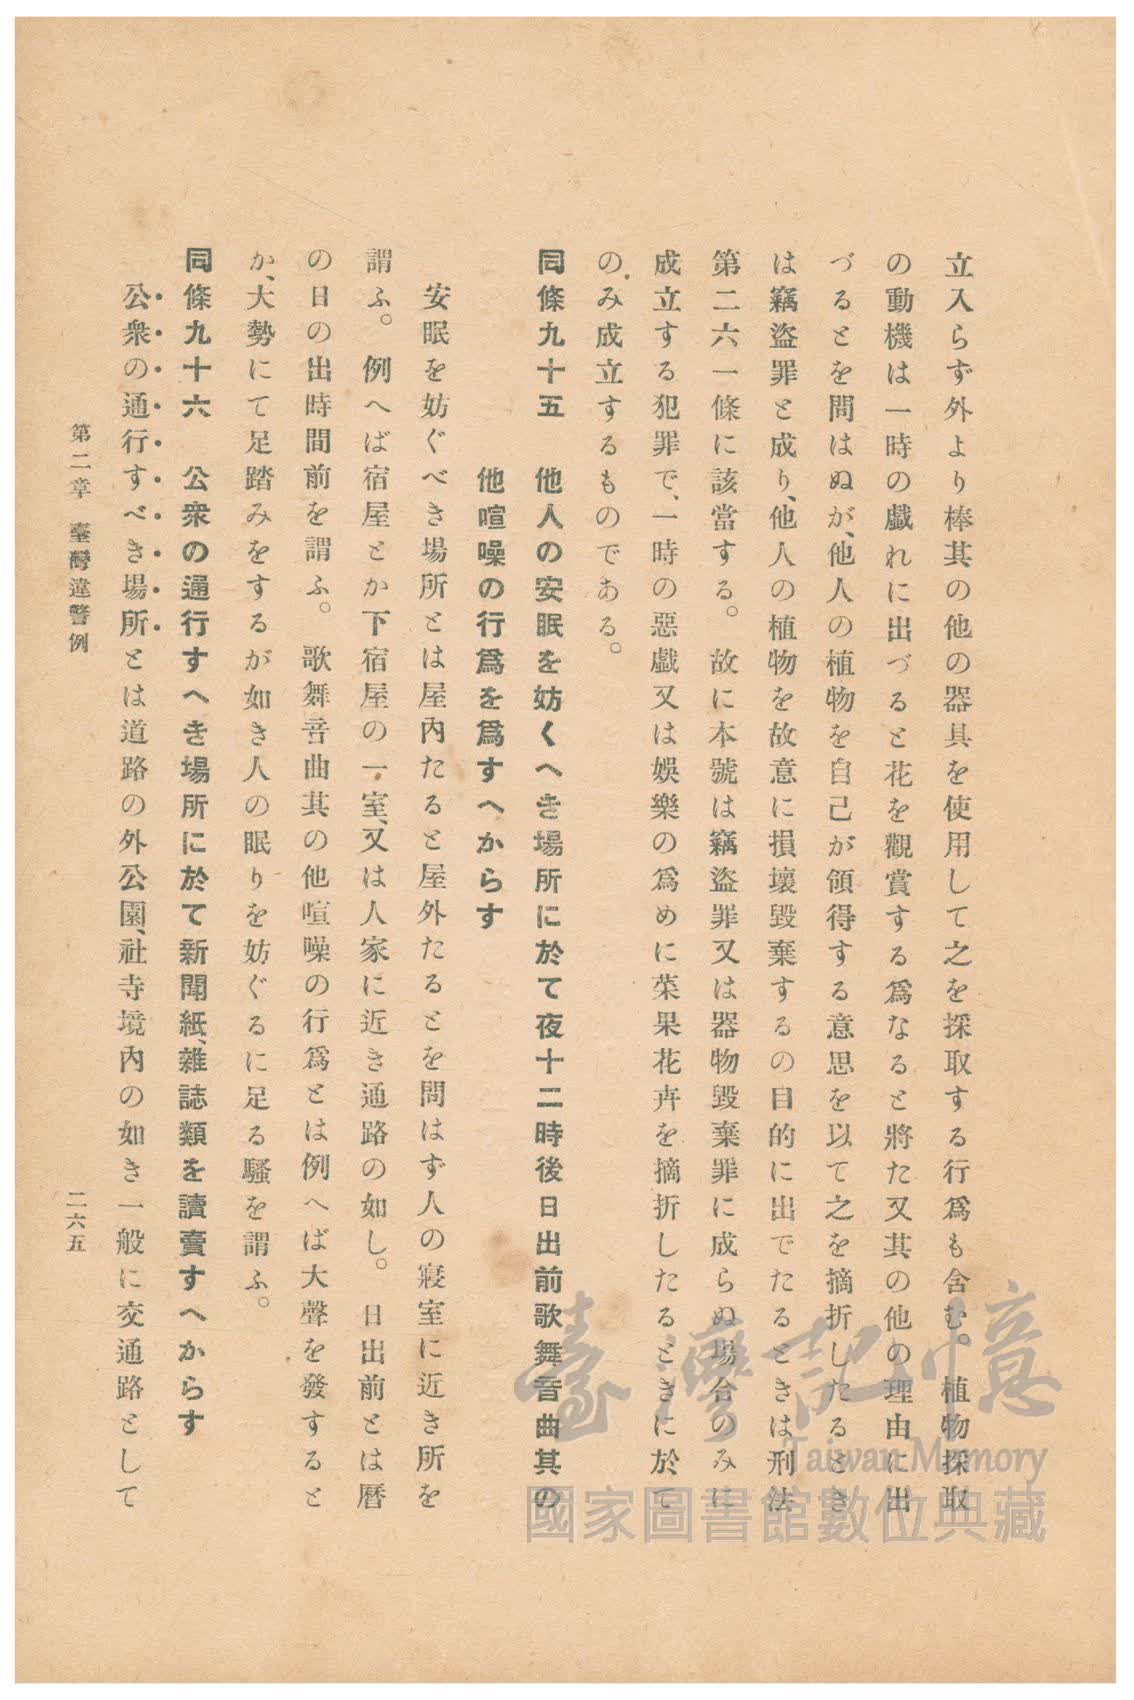 立入らず外より棒其の他の器具を使用して之を採取する行爲も含む。植物採取
の動機は一時の戲れに出づると花を觀賞する爲なると將た又其の他の理由に出
づるとを問はぬが、他人の植物を自己が領得する意思を以て之を摘折したるとき
は竊盜罪と成り、他人の植物を故意に損壞毀棄するの目的に出でたるときは刑法
第二六一條に該當する。故に本號は竊盜罪又は器物毀棄罪に成らぬ場合のみに
成立する犯罪で、一時の惡戲又は娛樂の爲めに菜果花卉を摘折したるときに於て
のみ成立するものである。
同條九十五　他人の安眠を妨くへき場所に於て夜十二時後日出前歌舞音曲其の
他喧噪の行爲を爲すへからす
安眠を妨ぐべき場所とは屋內たると屋外たるとを問はず人の寢室に近き所を
謂ふ。例へば宿屋とか下宿屋の一室、又は人家に近き通路の如し。日出前とは曆
の日の出時間前を謂ふ。歌舞音曲其の他喧噪の行爲とは例へば大聲を發すると
か、大勢にて足踏みをするが如き人の眠りを妨ぐるに足る騷を謂ふ。
同條九十六　公衆の通行すへき場所に於て新聞紙、雜誌類を讀賣すへからす
公衆の通行すべき場所とは道路の外公園、社寺境內の如き一般に交通路として
第二章　臺灣違警例
二六五
臺灣記憶
Taiwan Memory
國家圖書館數位典藏